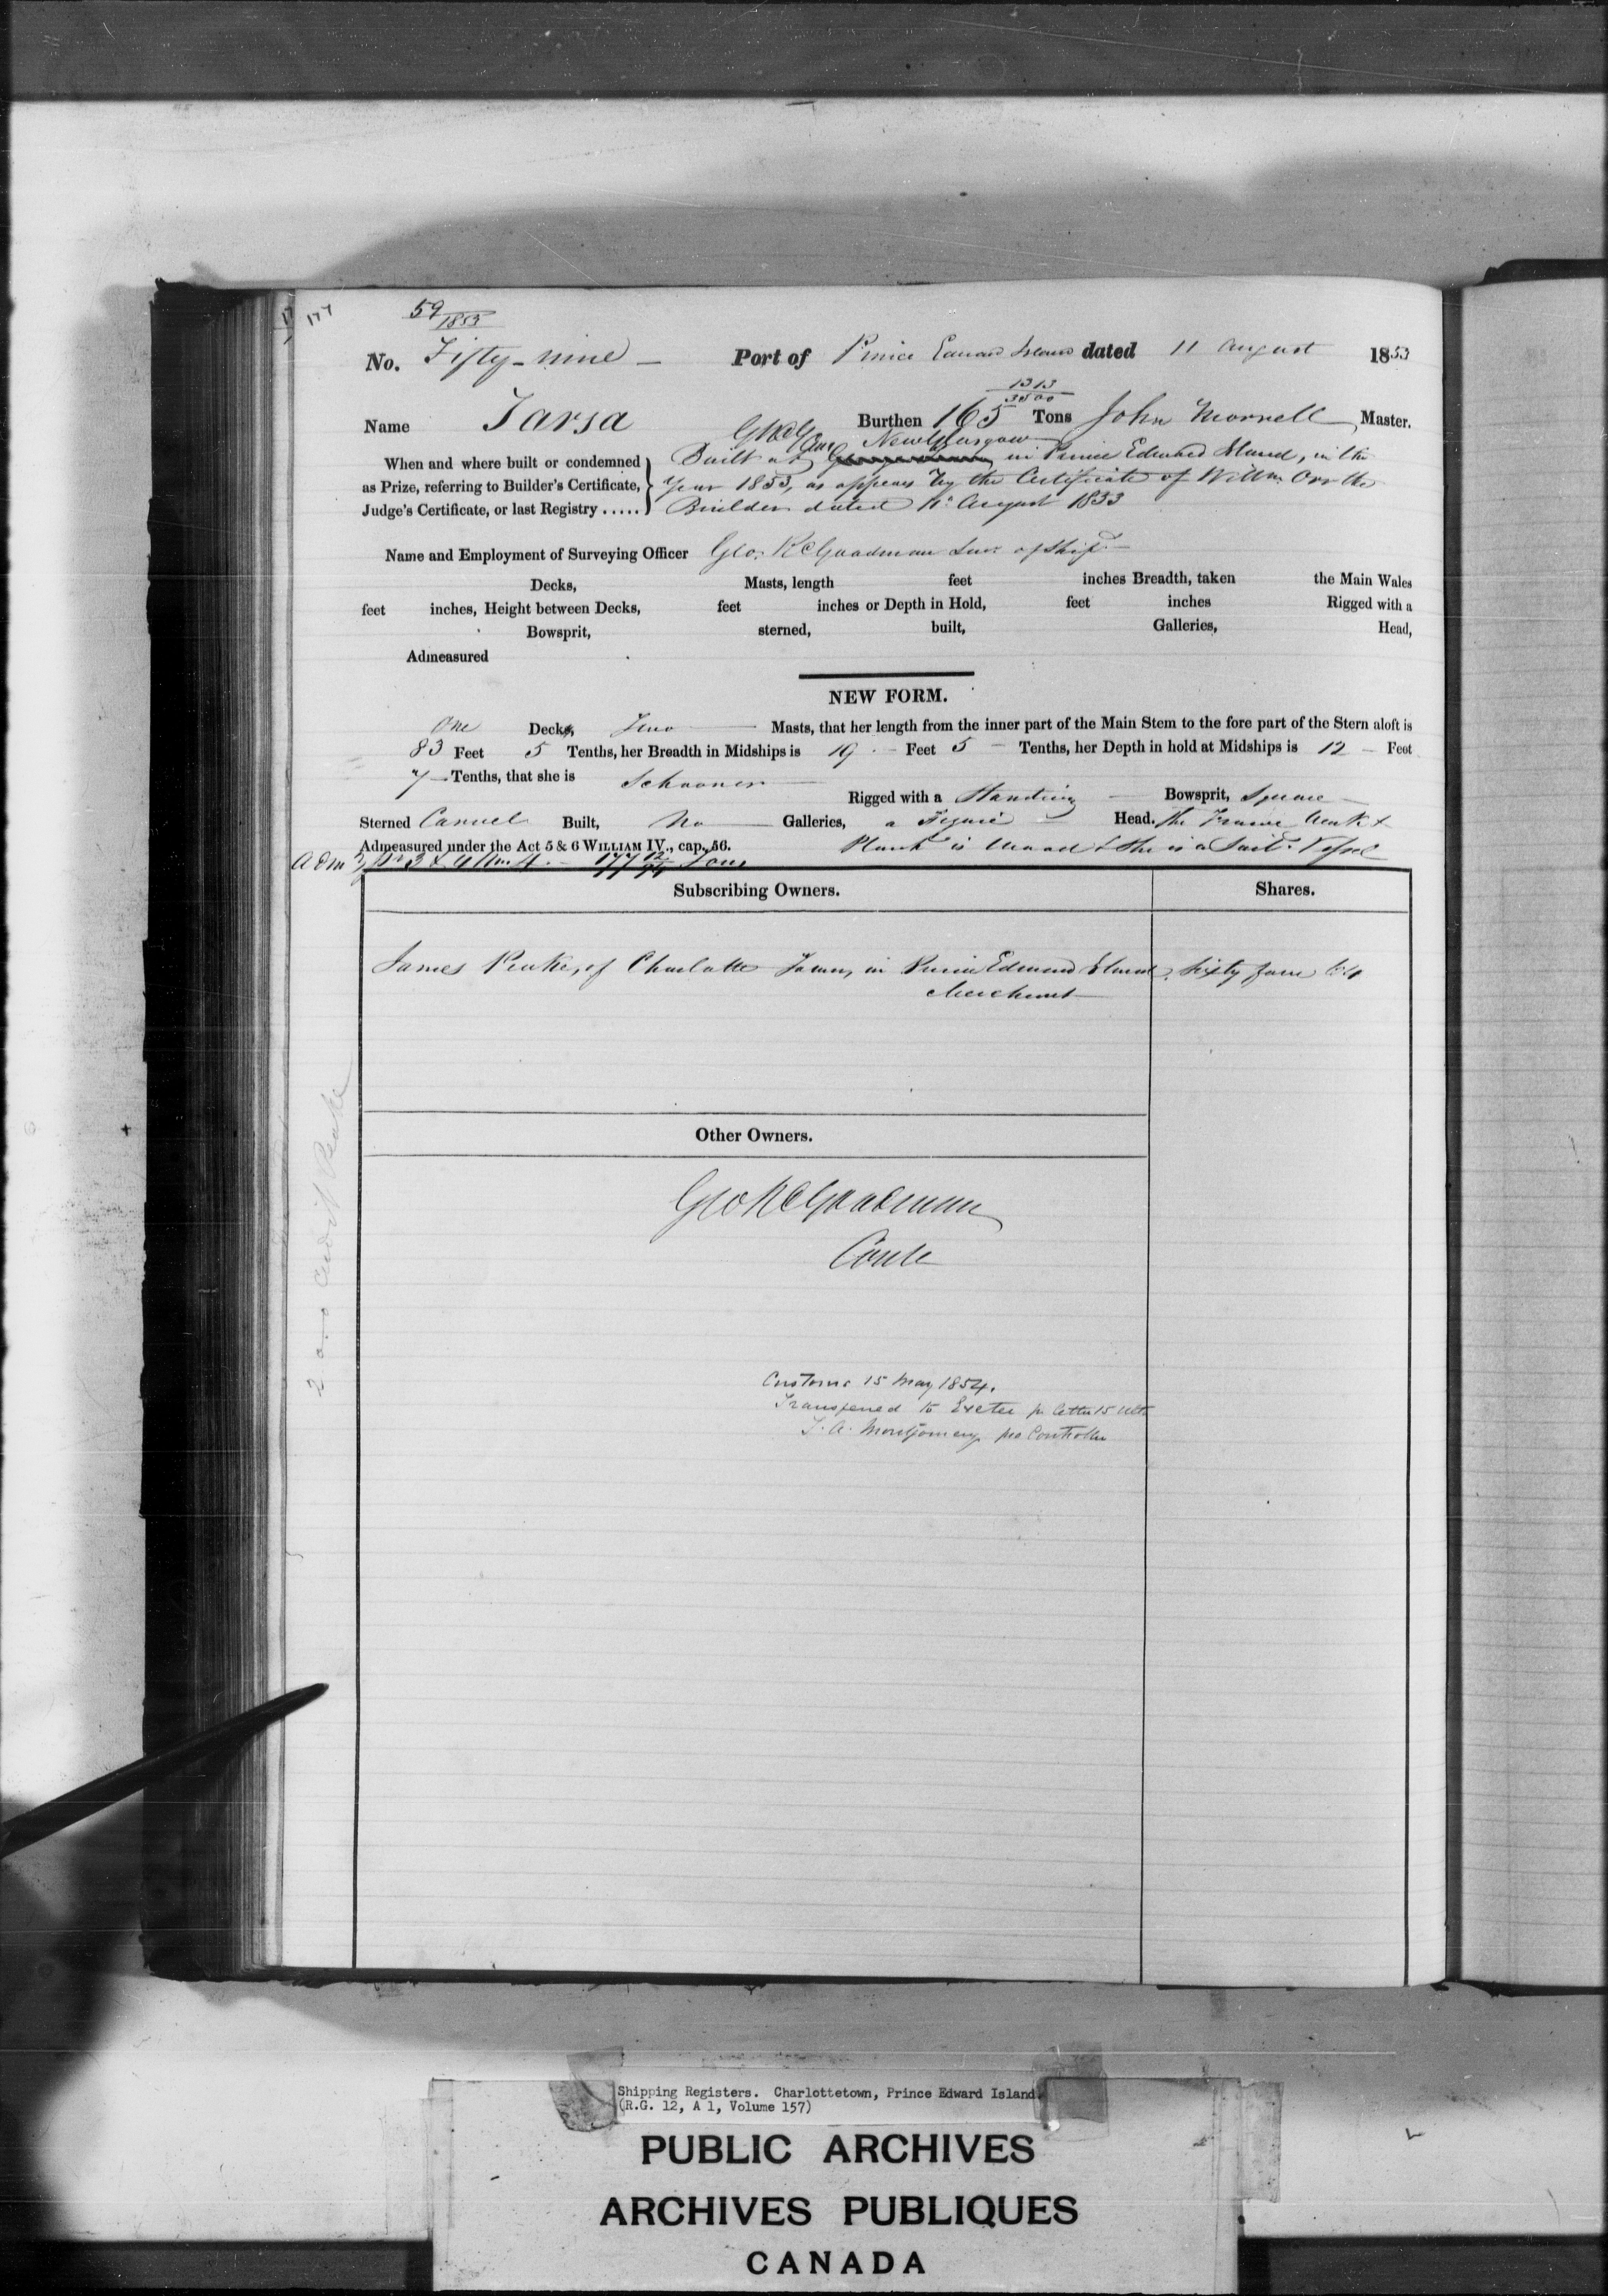 177
59/1853
No. Fifty-nine — Port of Prince Edward Island dated 11 August 1853
Name Tarsa Burthen 165 1313/3500 Tons John Morrell Master.
GRCG New Glasgow
When and where built or condemned Built at in Prince Edward Island, in the
as Prize, referring to Builder's Certificate, Year 1853, as appears by the Certificate of Willm Orr the
Judge's Certificate, or last Registry ..... Builder dated 11 August 1853
Name and Employment of Surveying Officer Geo. R C Goodman Surr of Ship
Decks, Masts, length feet inches Breadth, taken the Main Wales
feet inches, Height between Decks, feet inches or Depth in Hold, feet inches Rigged with a
Bowsprit, sterned, built, Galleries, Head,
Admeasured
NEW FORM.
One Decks, Two Masts, that her length from the inner part of the Main Stem to the fore part of the Stern aloft is
83 Feet 5 Tenths, her Breadth in Midships is 19 Feet 5 Tenths, her Depth in hold at Midships is 12 Feet
7 Tenths, that she is Schooner
Rigged with a Standing Bowsprit, Square
Sterned Carvel Built, No Galleries, a Figure Head. The Frame Work &
Admeasured under the Act 5 & 6 WILLIAM IV., cap. 56. Plank is Wood & She is a Sail.g Vessel
Adm 3 & 4 Wm. 4. — 177 12/94 Tons
Subscribing Owners. Shares.
James Peake, of Charlotte Town, in Prince Edward Island, Sixty four 64
Merchant
Other Owners.
Geo R C Goodman
Contr
Customs 15 May 1854.
Transferred to Exeter pr letter 15 Ult
T. A. Montgomery pro Controller
Shipping Registers. Charlottetown, Prince Edward Island
(R.G. 12, A 1, Volume 157)
PUBLIC ARCHIVES
ARCHIVES PUBLIQUES
CANADA